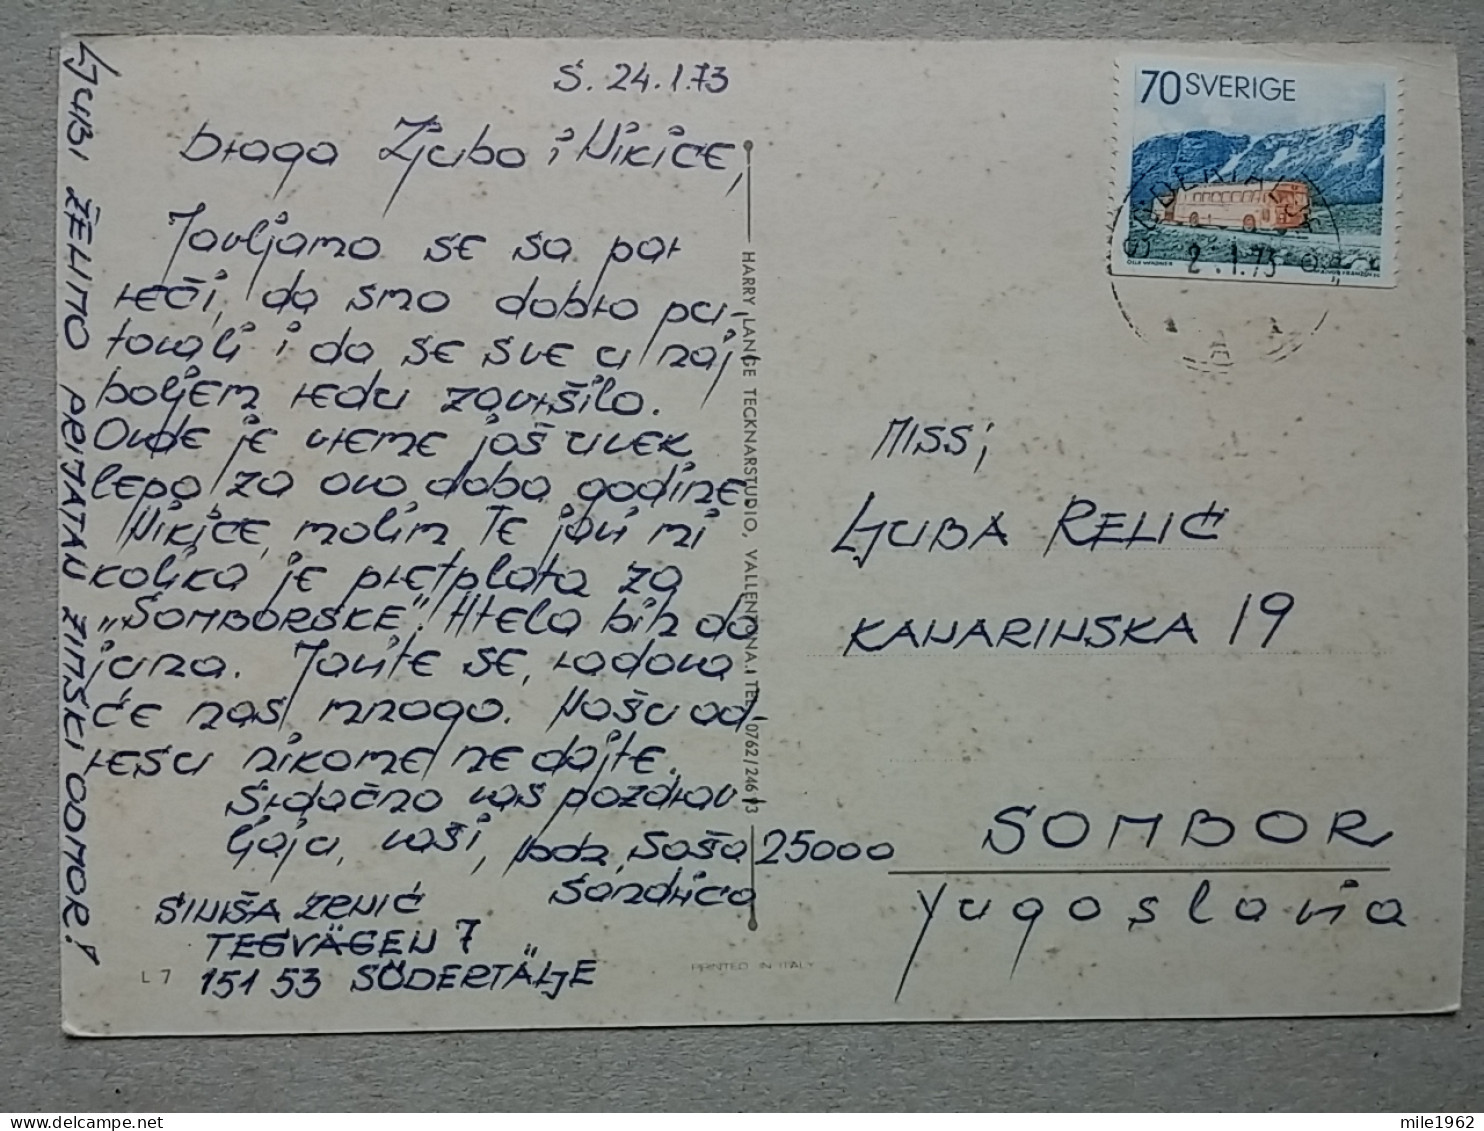 S. 24.1.73
Draga Ljubo i Nikice,
Javljamo se sa par
reči, da smo dobro pu-
tovali i da se sve u naj
boljem redu završilo.
Ovde je vreme još uvek
lepo za ovo doba godine
Nikice, molim Te javi mi
kolika je pretplata za
„SOMBORSKE". Htela bih da
juna. Javite se, radova
će nas mnogo. Našu ad-
resu nikome ne dajte.
Srdačno vas pozdrav
ljaju, vaši, Saša
Sandrica
SINIŠA ZRNIĆ
TEGVÄGEN 7
151 53 SÖDERTÄLJE
LJUBI ŽELIMO PRIJATAN ZIMSKI ODMOR!
L 7
HARRY LANGE TECKNARSTUDIO, VALLENTUNA. TEL 0762/246 93
PRINTED IN ITALY
70 SVERIGE
SÖDERTÄLJE
2 .1.73
MISS;
LJUBA RELIĆ
KANARINSKA 19
25000 SOMBOR
Yugoslavia
mile1962